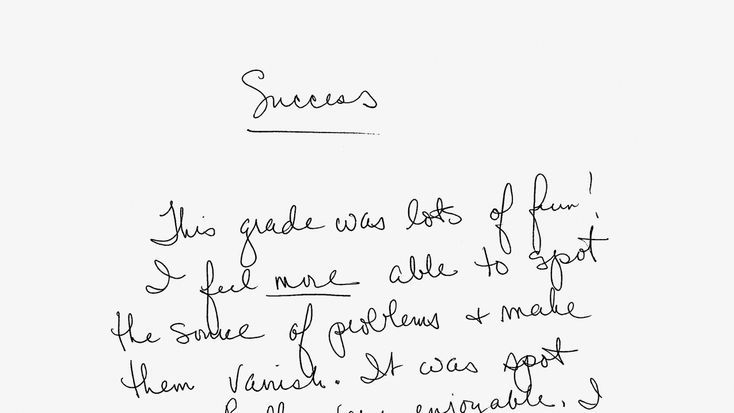 Success
This grade was lots of fun!
I feel more able to spot
the source of problems + make
them vanish. It was spot
enjoyable. I